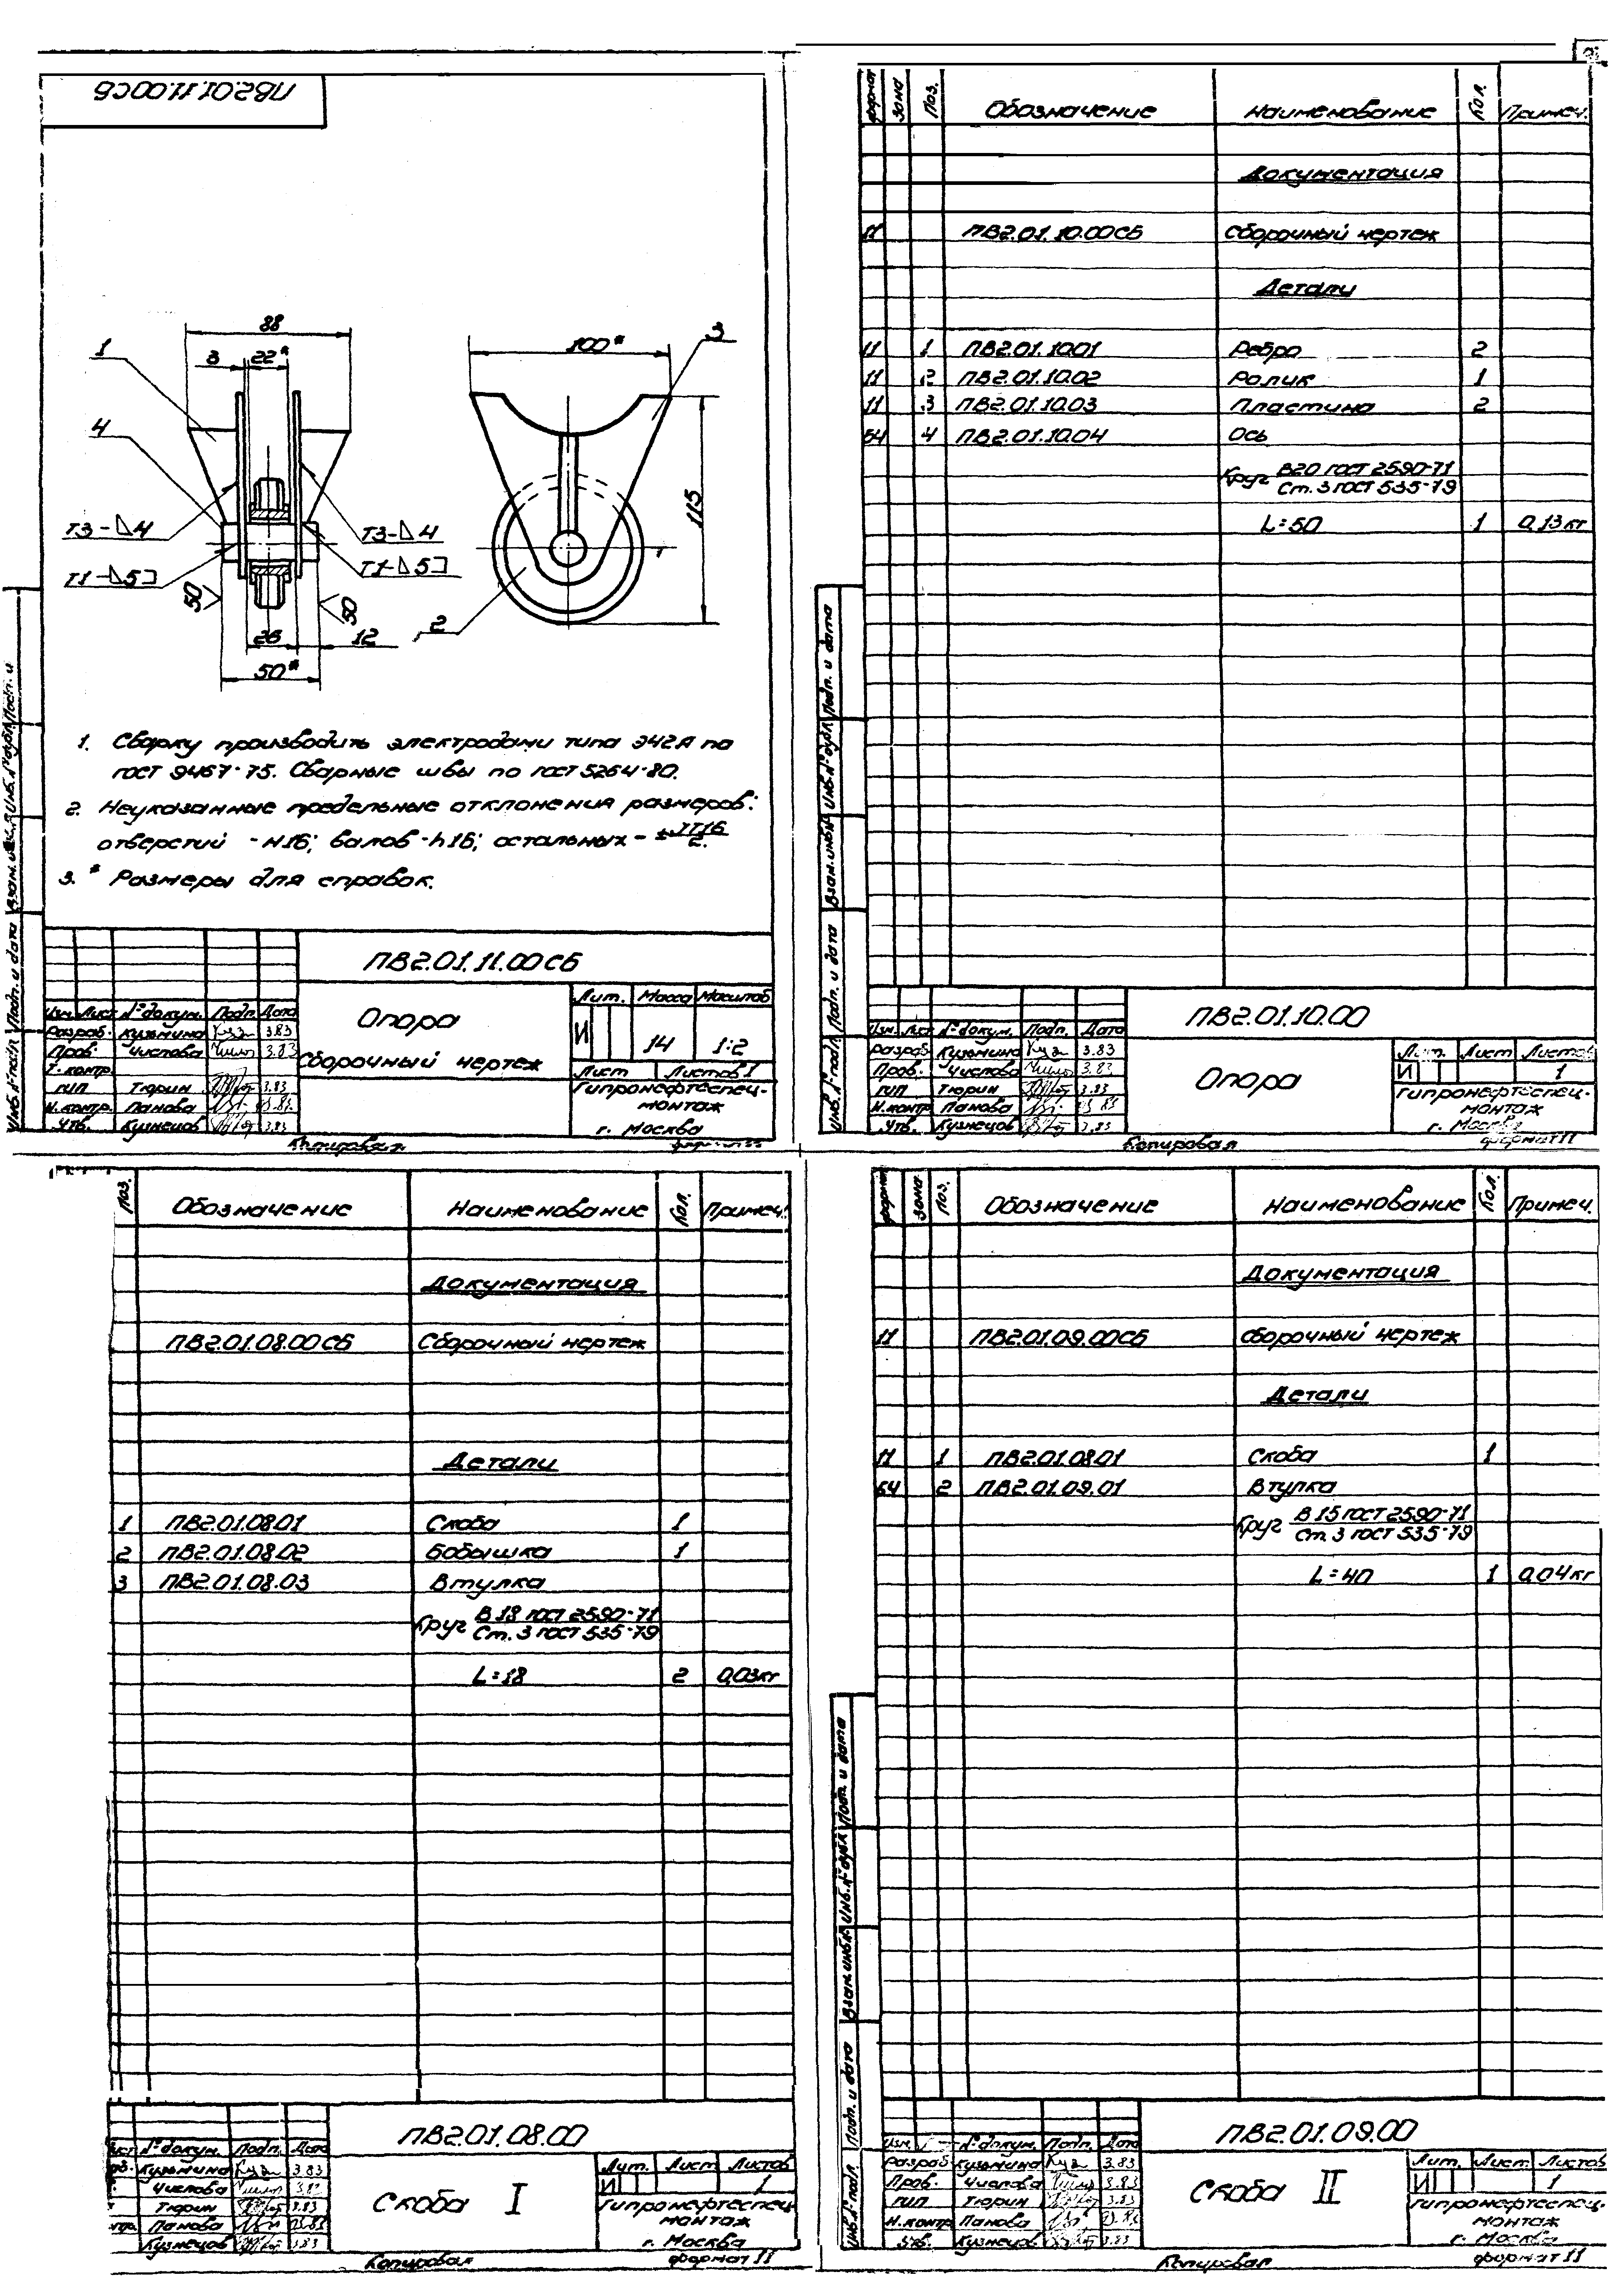 ПВ2.01.11.00СБ
88
3
22*
1
4
Т3-◺4
Т1-◺5⊐
Т3-◺4
Т1-◺5⊐
50
50
26
12
50*
100*
3
115
2
1. Сварку производить электродами типа Э42А по
ГОСТ 9467-75. Сварные швы по ГОСТ 5264-80.
2. Неуказанные предельные отклонения размеров:
отверстий - Н16; валов - h16; остальных - ± IT16/2.
3. * Размеры для справок.
Подп. и
Инв.№дубл.
Взам. инв.№
Подп. и дата
Инв.№подл.
ПВ2.01.11.00СБ
Изм. Лист №докум. Подп. Дата
Разраб. Кузьмина 3.83
Пров. Числова 3.83
Т. контр.
ГИП Тюрин 3.83
Н. контр. Панова
Утв. Кузнецов 3.83
Опора
Сборочный чертеж
Лит. Масса Масштаб
И 14 1:2
Лист Листов 1
Гипронефтеспец-
монтаж
г. Москва
Копировал
формат
формат зона Поз. Обозначение Наименование Кол. Примеч.
Документация
11 ПВ2.01.10.00СБ Сборочный чертеж
Детали
11 1 ПВ2.01.10.01 Ребро 2
11 2 ПВ2.01.10.02 Ролик 1
11 3 ПВ2.01.10.03 Пластина 2
б4 4 ПВ2.01.10.04 Ось
Круг В20 ГОСТ 2590-71
Ст. 3 ГОСТ 535-79
L=50 1 0,13кг
Подп. и дата
Инв.№дубл.
Взам.инв№
Подп. и дата
Инв.№подл.
ПВ2.01.10.00
Изм. Лист №докум. Подп. Дата
Разраб. Кузьмина 3.83
Пров. Числова 3.83
ГИП Тюрин 3.83
Н. контр. Панова
Утв. Кузнецов 3.83
Опора
Лит. Лист Листов
И 1
Гипронефтеспец-
монтаж
г. Москва
Копировал
формат 11
Поз. Обозначение Наименование Кол. Примеч.
Документация
ПВ2.01.08.00СБ Сборочный чертеж
Детали
1 ПВ2.01.08.01 Скоба 1
2 ПВ2.01.08.02 Бобышка 1
3 ПВ2.01.08.03 Втулка
Круг В 18 ГОСТ 2590-71
Ст. 3 ГОСТ 535-79
L=18 2 0,03кг
ПВ2.01.08.00
№докум. Подп. Дата
Кузьмина 3.83
Числова
Тюрин 3.83
Панова
Кузнецов 3.83
Скоба I
Лит. Лист Листов
И 1
Гипронефтеспец-
монтаж
г. Москва
Копировал
формат 11
формат зона Поз. Обозначение Наименование Кол. Примеч.
Документация
11 ПВ2.01.09.00СБ Сборочный чертеж
Детали
11 1 ПВ2.01.08.01 Скоба 1
б4 2 ПВ2.01.09.01 Втулка
Круг В 15 ГОСТ 2590-71
Ст. 3 ГОСТ 535-79
L=40 1 0,04кг
Подп. и дата
Инв.№дубл.
Взам.инв.№
Подп. и дата
Инв.№подл.
ПВ2.01.09.00
Изм. №докум. Подп. Дата
Разраб. Кузьмина 3.83
Пров. Числова 3.83
ГИП Тюрин 3.83
Н. контр. Панова
Утв. Кузнецов 3.83
Скоба II
Лит. Лист Листов
И 1
Гипронефтеспец-
монтаж
г. Москва
Копировал
формат 11